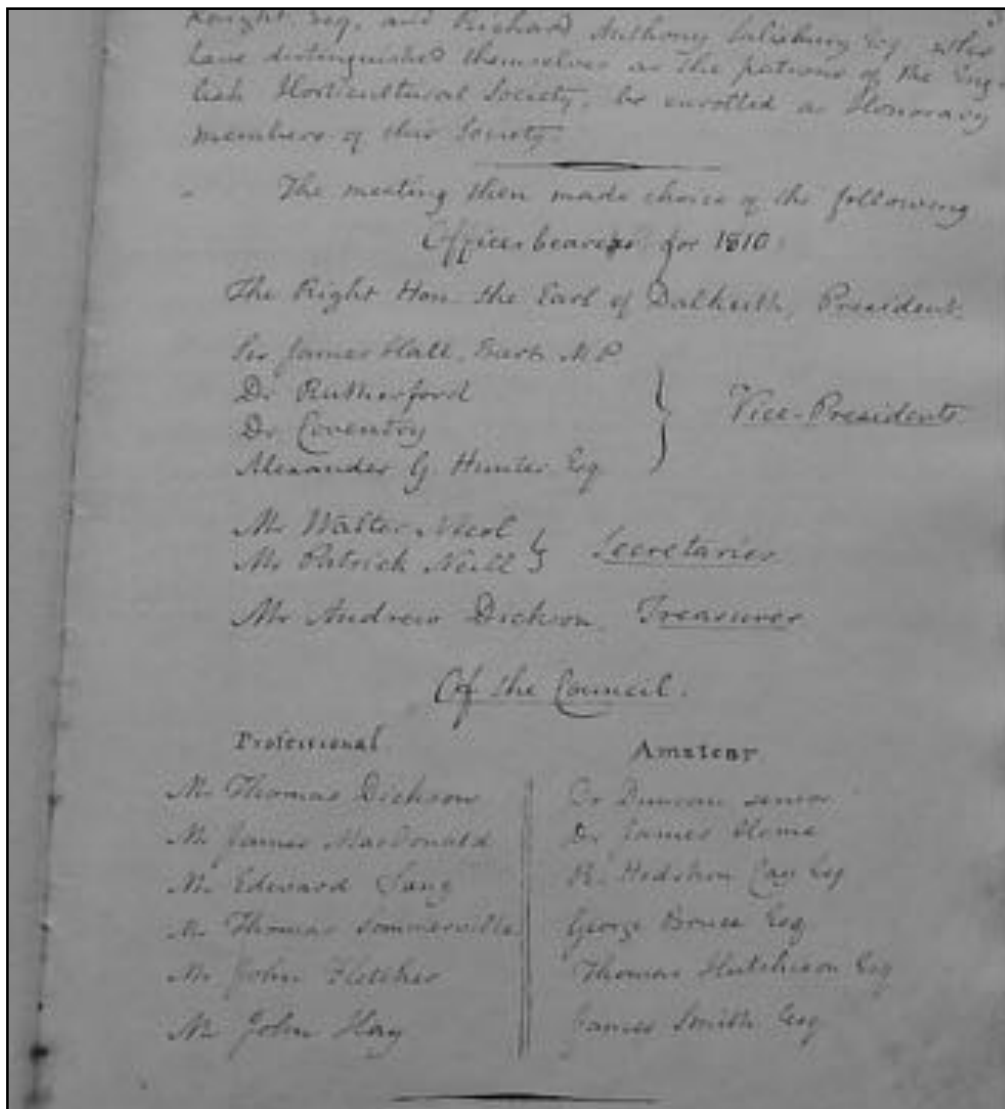 Knight Esq, and Richard Anthony Salisbury Esq who
have distinguished themselves as the patrons of the Eng-
lish Horticultural Society, be enrolled as Honorary
members of this Society.
The meeting then made choice of the following
Office bearers for 1810:
The Right Hon. the Earl of Dalkeith, President.
Sir James Hall, Bart. M.P.
Dr Rutherford
Dr Coventry
Alexander G. Hunter Esq
Vice-Presidents
Mr Walter Nicol
Mr Patrick Neill
Secretaries
Mr Andrew Dickson, Treasurer
Of the Council.
Professional
Amateur
Mr Thomas Dickson
Dr Duncan senior
Mr James MacDonald
Dr James Home
Mr Edward Sang
R. Hodshon Cay Esq
Mr Thomas Sommerville
George Bruce Esq
Mr John Fletcher
Thomas Hutchison Esq
Mr John Hay
James Smith Esq